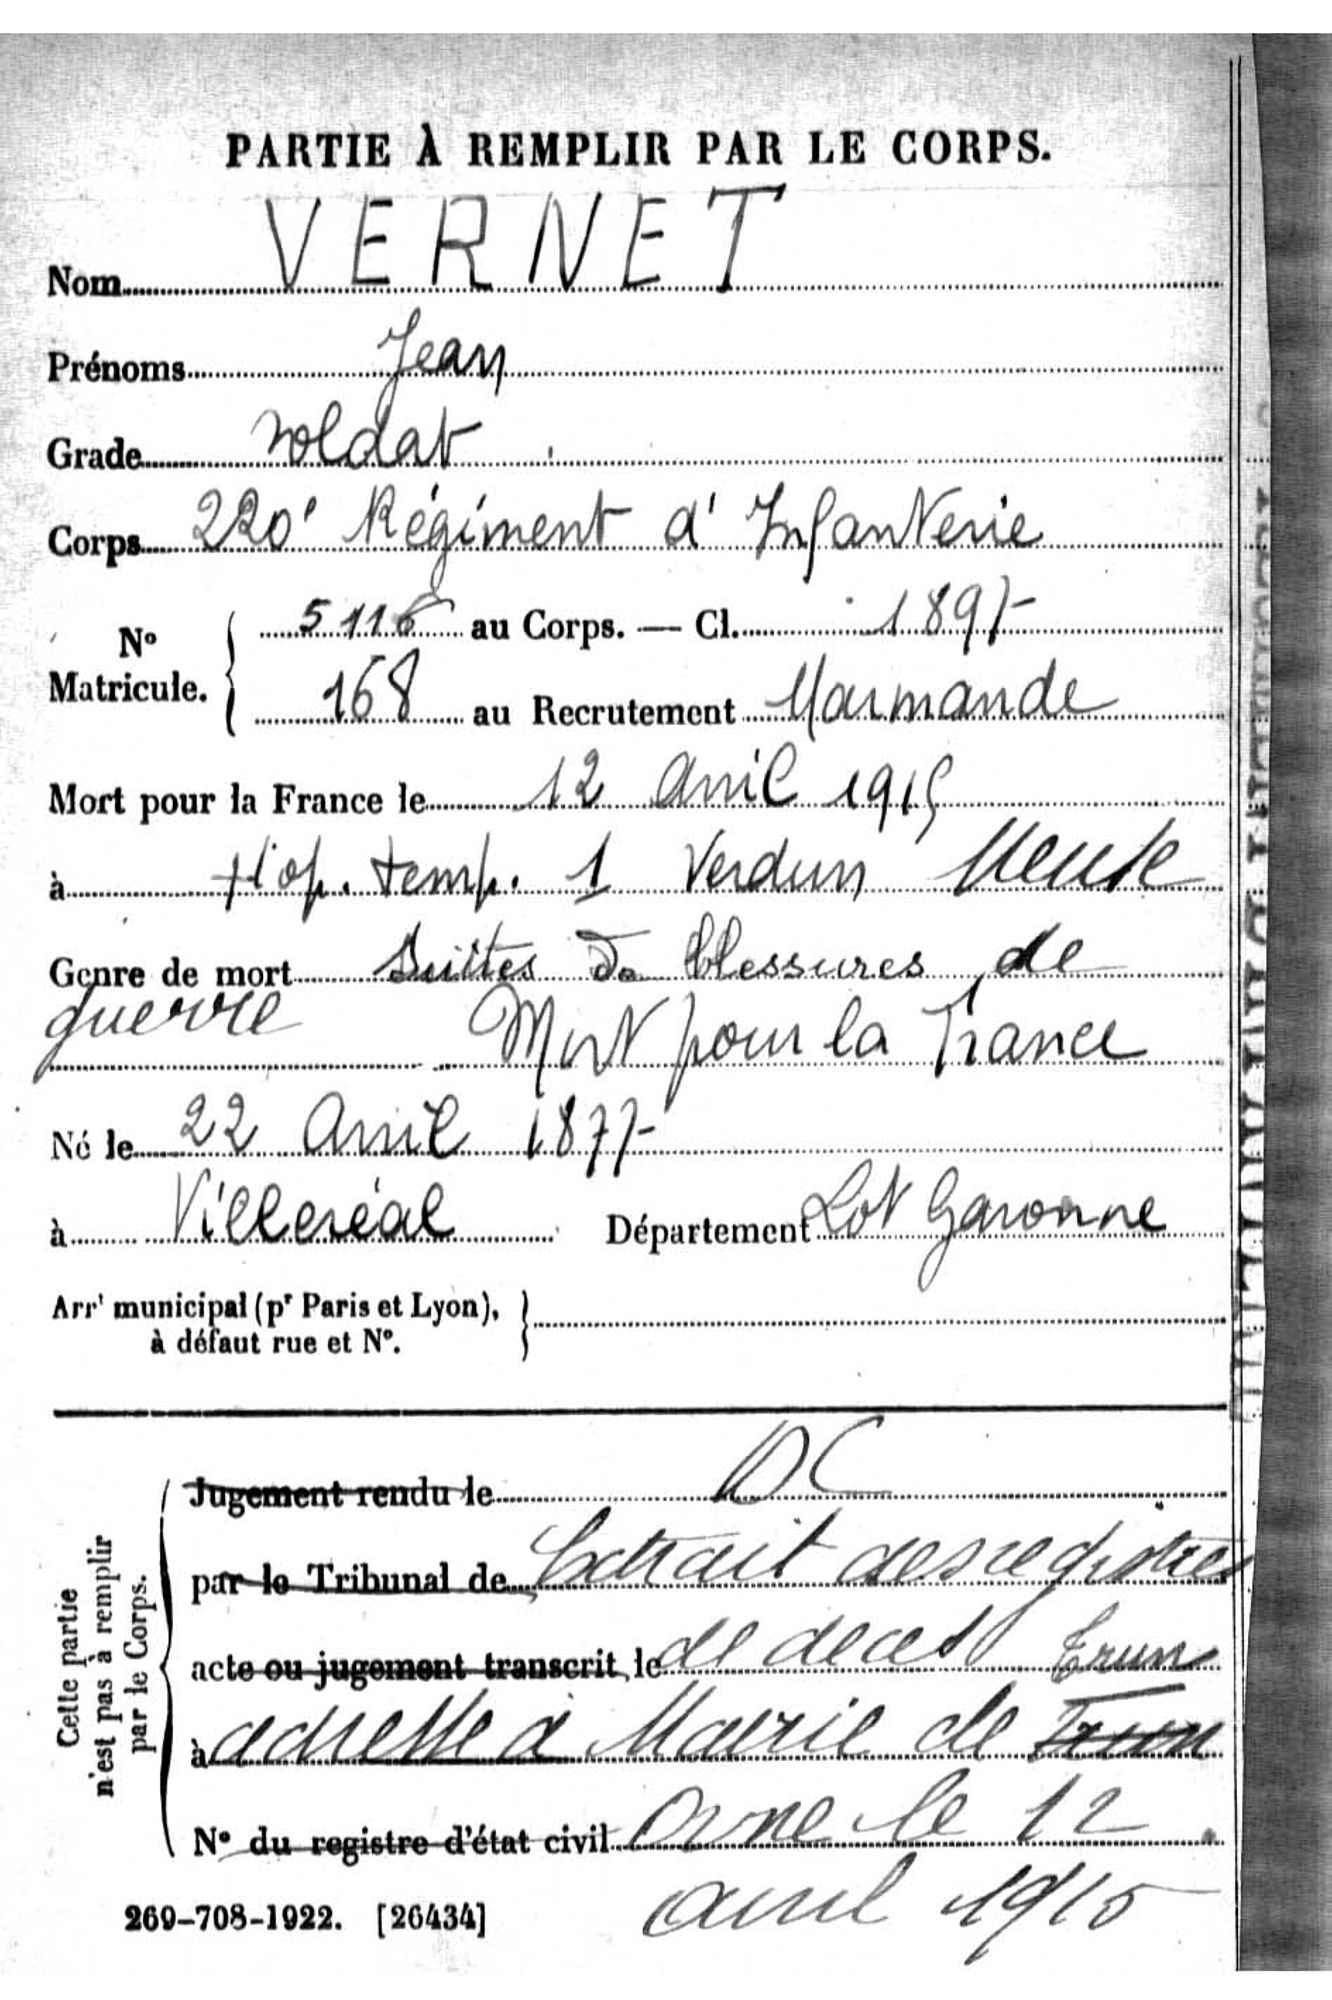 PARTIE À REMPLIR PAR LE CORPS.
Nom VERNET
Prénoms Jean
Grade soldat
Corps 220e Régiment d'Infanterie
No Matricule. 5116 au Corps. — Cl. 1897
168 au Recrutement Marmande
Mort pour la France le 12 Avril 1915
à Hop. temp. 1 Verdun Meuse
Genre de mort Suites de blessures de
guerre Mort pour la France
Né le 22 Avril 1877
à Villeréal Département Lot Garonne
Arrt municipal (pr Paris et Lyon),
à défaut rue et No.
Cette partie
n'est pas à remplir
par le Corps.
Jugement rendu le DC
par le Tribunal de Extrait des registres
acte ou jugement transcrit le de deces Trun
à adresse à Mairie de
No du registre d'état civil Orne le 12
avril 1915
269-708-1922. [26434]